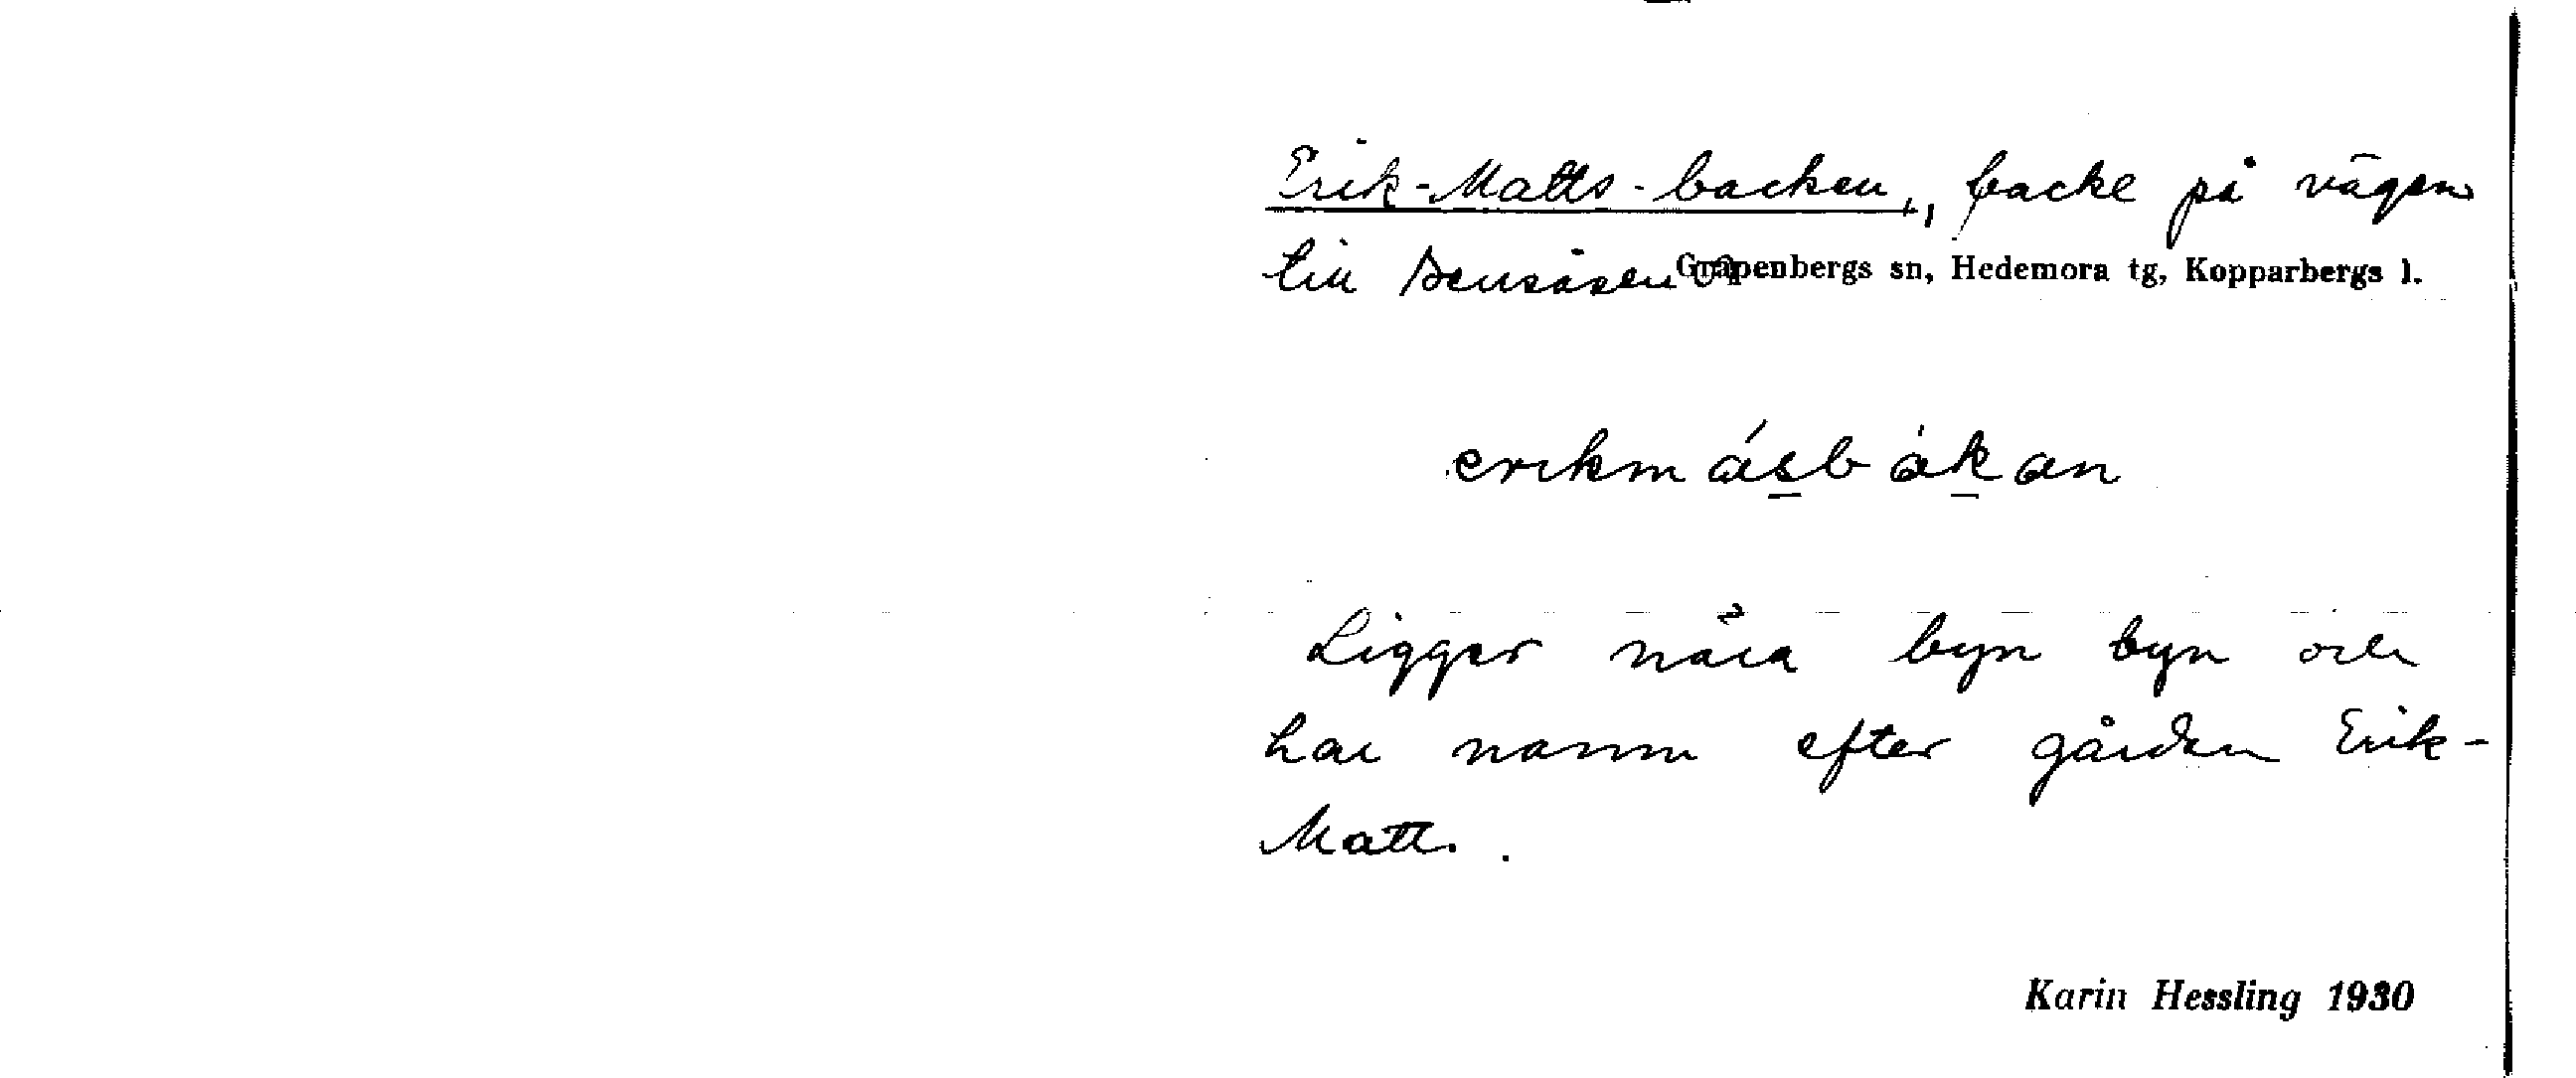 Erik-Matts-backen, backe på vägen
till Garpenbergs sn, Hedemora tg, Kopparbergs l.
erikmásbàkan
Ligger nära byn byn och
har namn efter gården Erik-
Matts.
Karin Hessling 1930